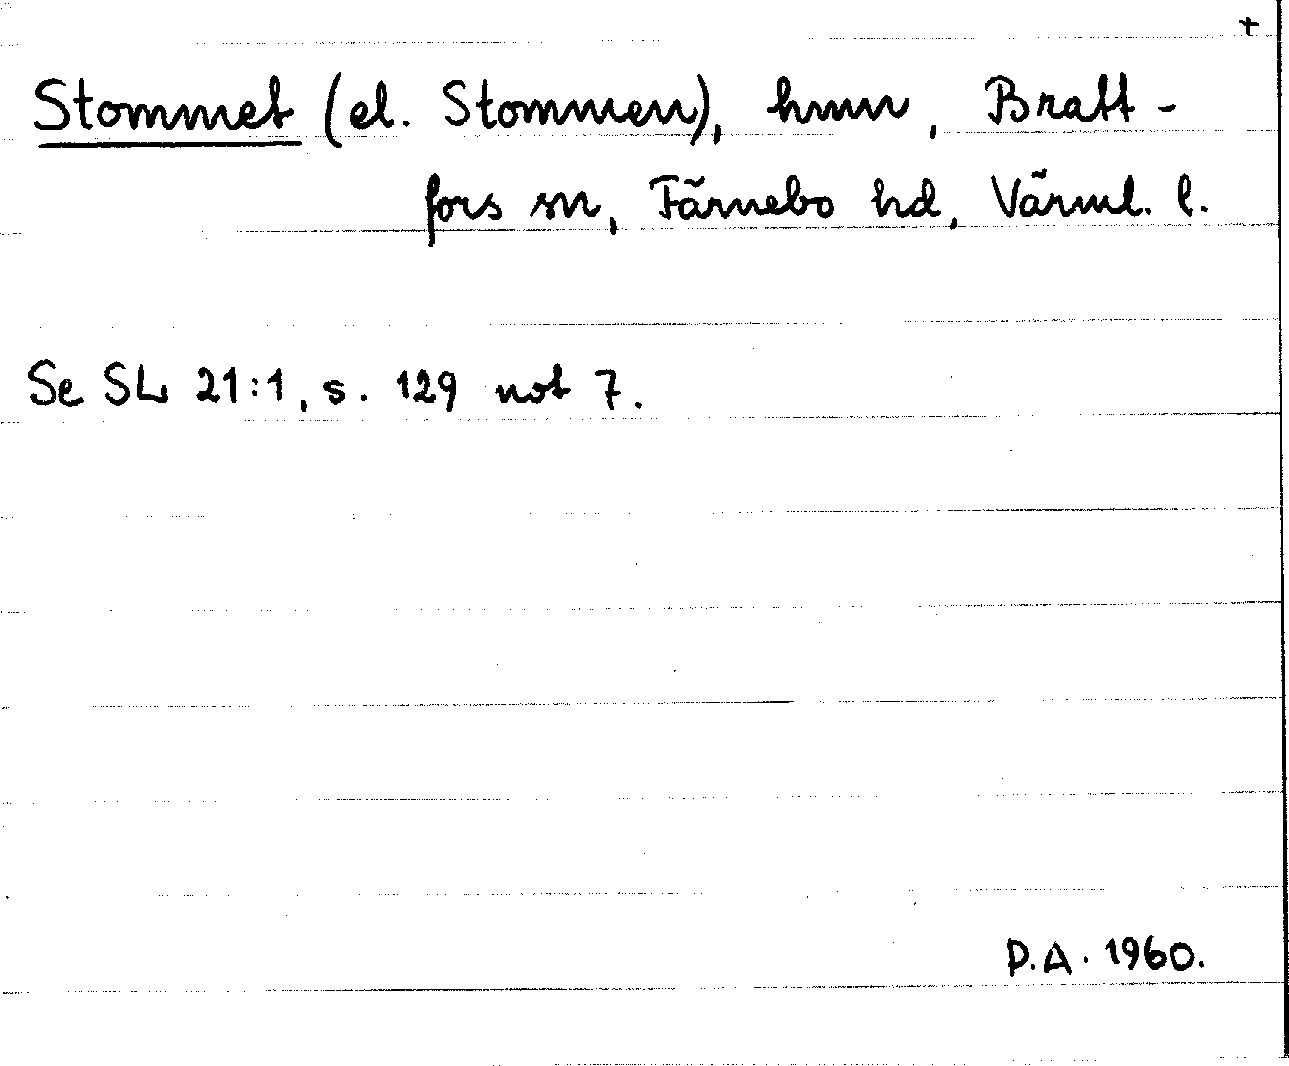 +
Stommet (el. Stommen), hmn, Bratt-
fors sn, Färnebo hd, Värml. l.
Se SL 21:1, s. 129 not 7.
P.A. 1960.